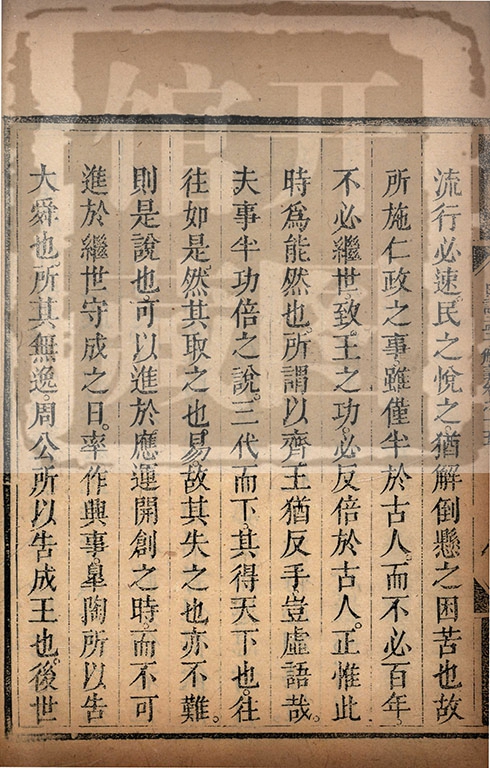 流行必速。民之悅之。猶解倒懸之困苦也。故
所施仁政之事。雖僅半於古人。而不必百年。
不必繼世。致王之功。必反倍於古人。正惟此
時爲能然也。所謂以齊王猶反手。豈虛語哉。
夫事半功倍之說。三代而下。其得天下也。往
往如是。然其取之也易。故其失之也亦不難。
則是說也。可以進於應運開創之時。而不可
進於繼世守成之日。率作興事。臯陶所以告
大舜也。所其無逸。周公所以告成王也。後世